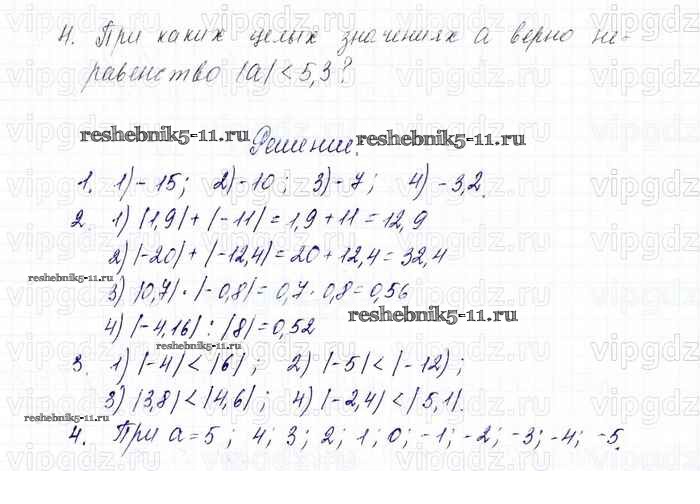 4. При каких целых значениях a верно не-
равенство |a| < 5,3?
reshebnik5-11.ru
Решение.
reshebnik5-11.ru
1. 1) -15; 2) -10; 3) -7; 4) -3,2.
2. 1) |1,9| + |-11| = 1,9 + 11 = 12,9
2) |-20| + |-12,4| = 20 + 12,4 = 32,4
reshebnik5-11.ru
3) |0,7| · |-0,8| = 0,7 · 0,8 = 0,56
4) |-4,16| : |8| = 0,52
reshebnik5-11.ru
3. 1) |-4| < |6|; 2) |-5| < |-12|;
3) |3,8| < |4,6|; 4) |-2,4| < |5,1|.
reshebnik5-11.ru
4. При a = 5; 4; 3; 2; 1; 0; -1; -2; -3; -4; -5.
vipgdz